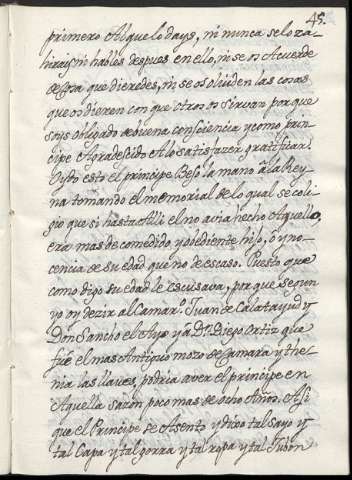 45.
primero Al que lo days, ni nunca se lo za-
hirays ni hables despues en ello, ni se os Acuerde
de Cosa que dieredes, ni se os oluiden las cosas
que os dieren con que otros os sirvan porque
soys obligado a buena conçiencia y como prin-
cipe Agradesçido A lo satisfazer gratificar.
Oydo esto el principe Besó la mano a la Rey-
na tomando el memorial de lo qual se coli-
gio que si hasta Alli el no avia hecho Aquello,
era mas de comedido, y obediente hijo, o yno-
cencia de su edad que no de escaso. Puesto que
como digo su edad le escusava, porque segun
yo oy dezir al Camar.º Juan de Calatayud y
Don Sancho el Ayo y a Dº Diego Ortiz que
fue el mas Antiguo mozo de Camara y the-
nia las llaves, podria aver el principe en
Aquella sazon poco mas de ocho Años. Assi
que el Principe se Asento y dixo tal sayo y
tal Capa y tal gorra y tal ropa y tal Jubon